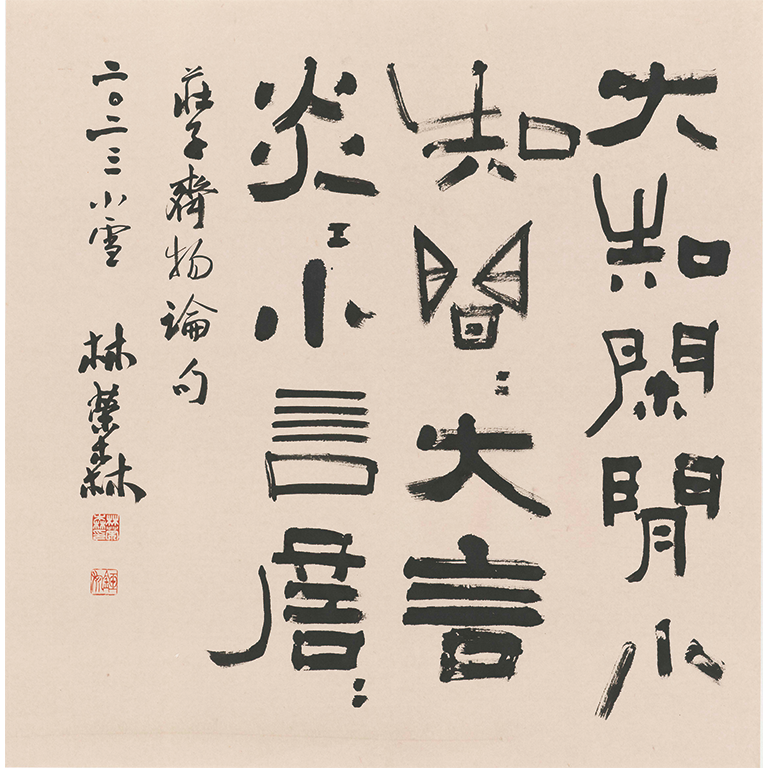 大知閑閒小
知間〻大言
炎〻小言詹〻
莊子齊物論句
二〇二三小雪 林榮森